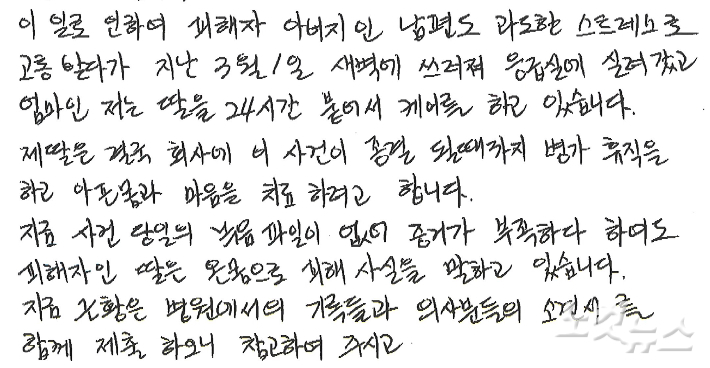 이 일로 인하여 피해자 아버지인 남편도 과도한 스트레스로
고통 받다가 지난 3월 1일 새벽에 쓰러져 응급실에 실려갔고
엄마인 저는 딸을 24시간 붙어서 케어를 하고 있습니다.
제딸은 결국 회사에 이 사건이 종결 될때까지 병가 휴직을
하고 아픈몸과 마음을 치료 하려고 합니다.
지금 사건 당일의 녹음파일이 없어 증거가 부족하다 하여도
피해자인 딸은 온몸으로 피해 사실을 말하고 있습니다.
지금 상황은 병원에서의 기록들과 의사분들의 소견서를
함께 제출 하오니 참고하여 주시고
노컷뉴스